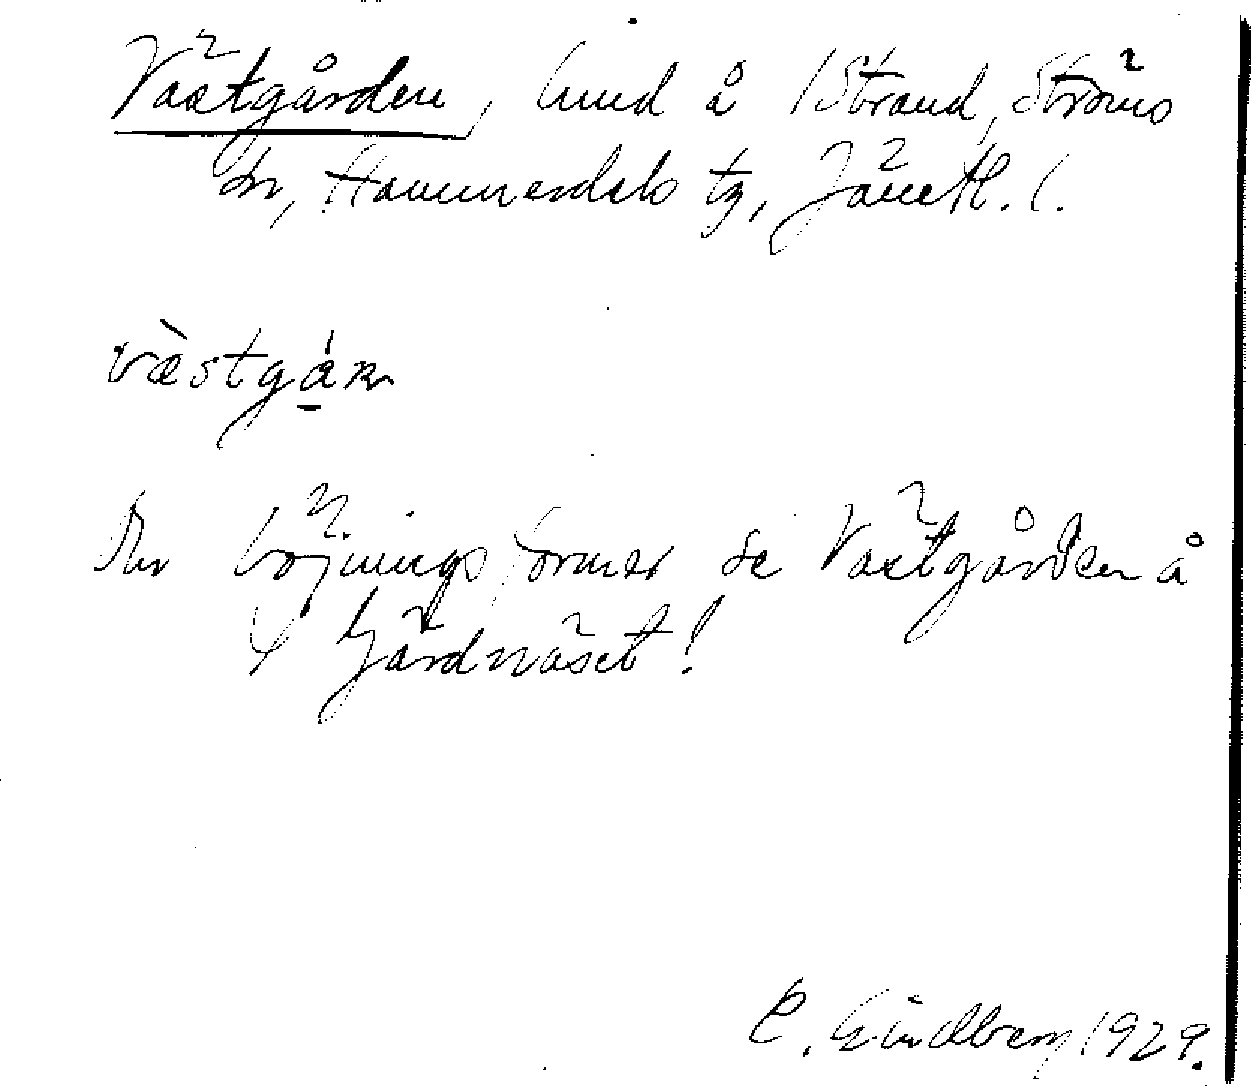 Västgården, hmd å 1 Strand, Ströms
sn, Hammerdals tg, Jämtl. l.
vàstgá̱ṛn
För böjningsformer se Västgården å
4 Gärdnäset!
E. Lindberg 1929.